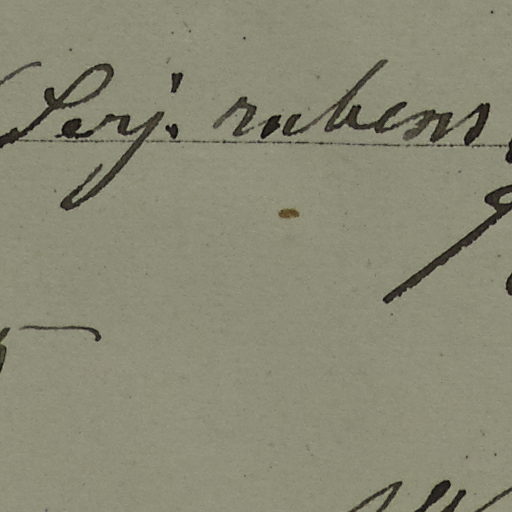 Serj. rubens